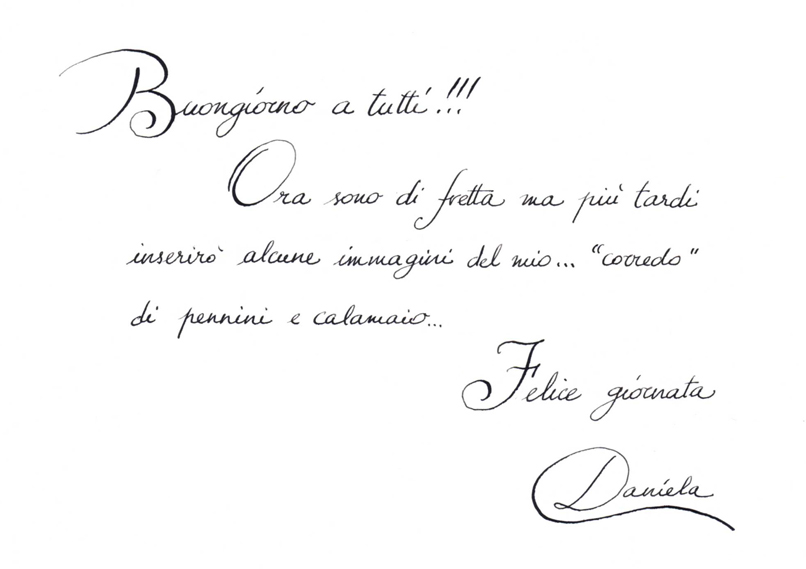 Buongiorno a tutti!!!
Ora sono di fretta ma più tardi
inserirò alcune immagini del mio... "corredo"
di pennini e calamaio...
Felice giornata
Daniela